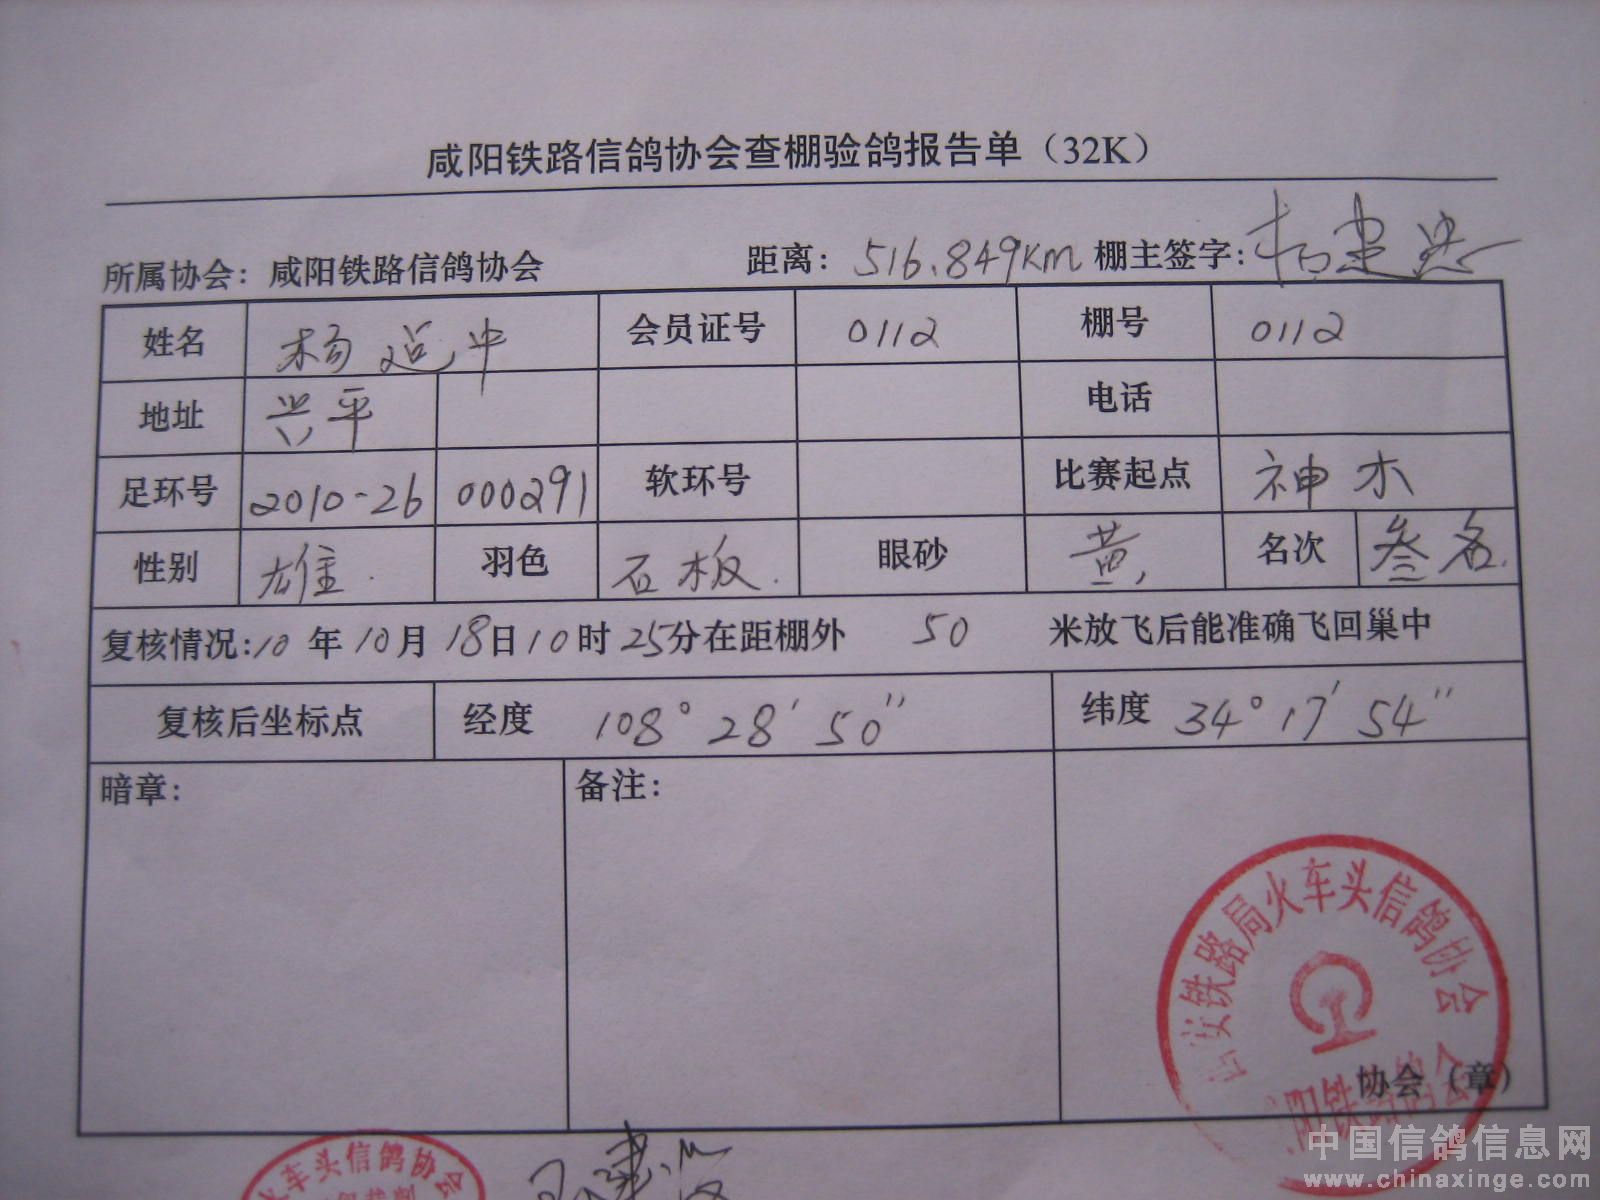 咸阳铁路信鸽协会查棚验鸽报告单（32K）
所属协会：咸阳铁路信鸽协会 距离：516.849KM 棚主签字：
姓名 杨 中 会员证号 0112 棚号 0112
地址 兴平 电话
足环号 2010-26 000291 软环号 比赛起点 神木
性别 雄. 羽色 石板. 眼砂 黄, 名次 叁名.
复核情况:10年10月18日10时25分在距棚外 50 米放飞后能准确飞回巢中
复核后坐标点 经度 108°28′50″ 纬度 34°17′54″
暗章： 备注：
安铁路局火车头信鸽协会
协会（章）
阳铁 鸽会
火车头信鸽协会
中国信鸽信息网
www.chinaxinge.com